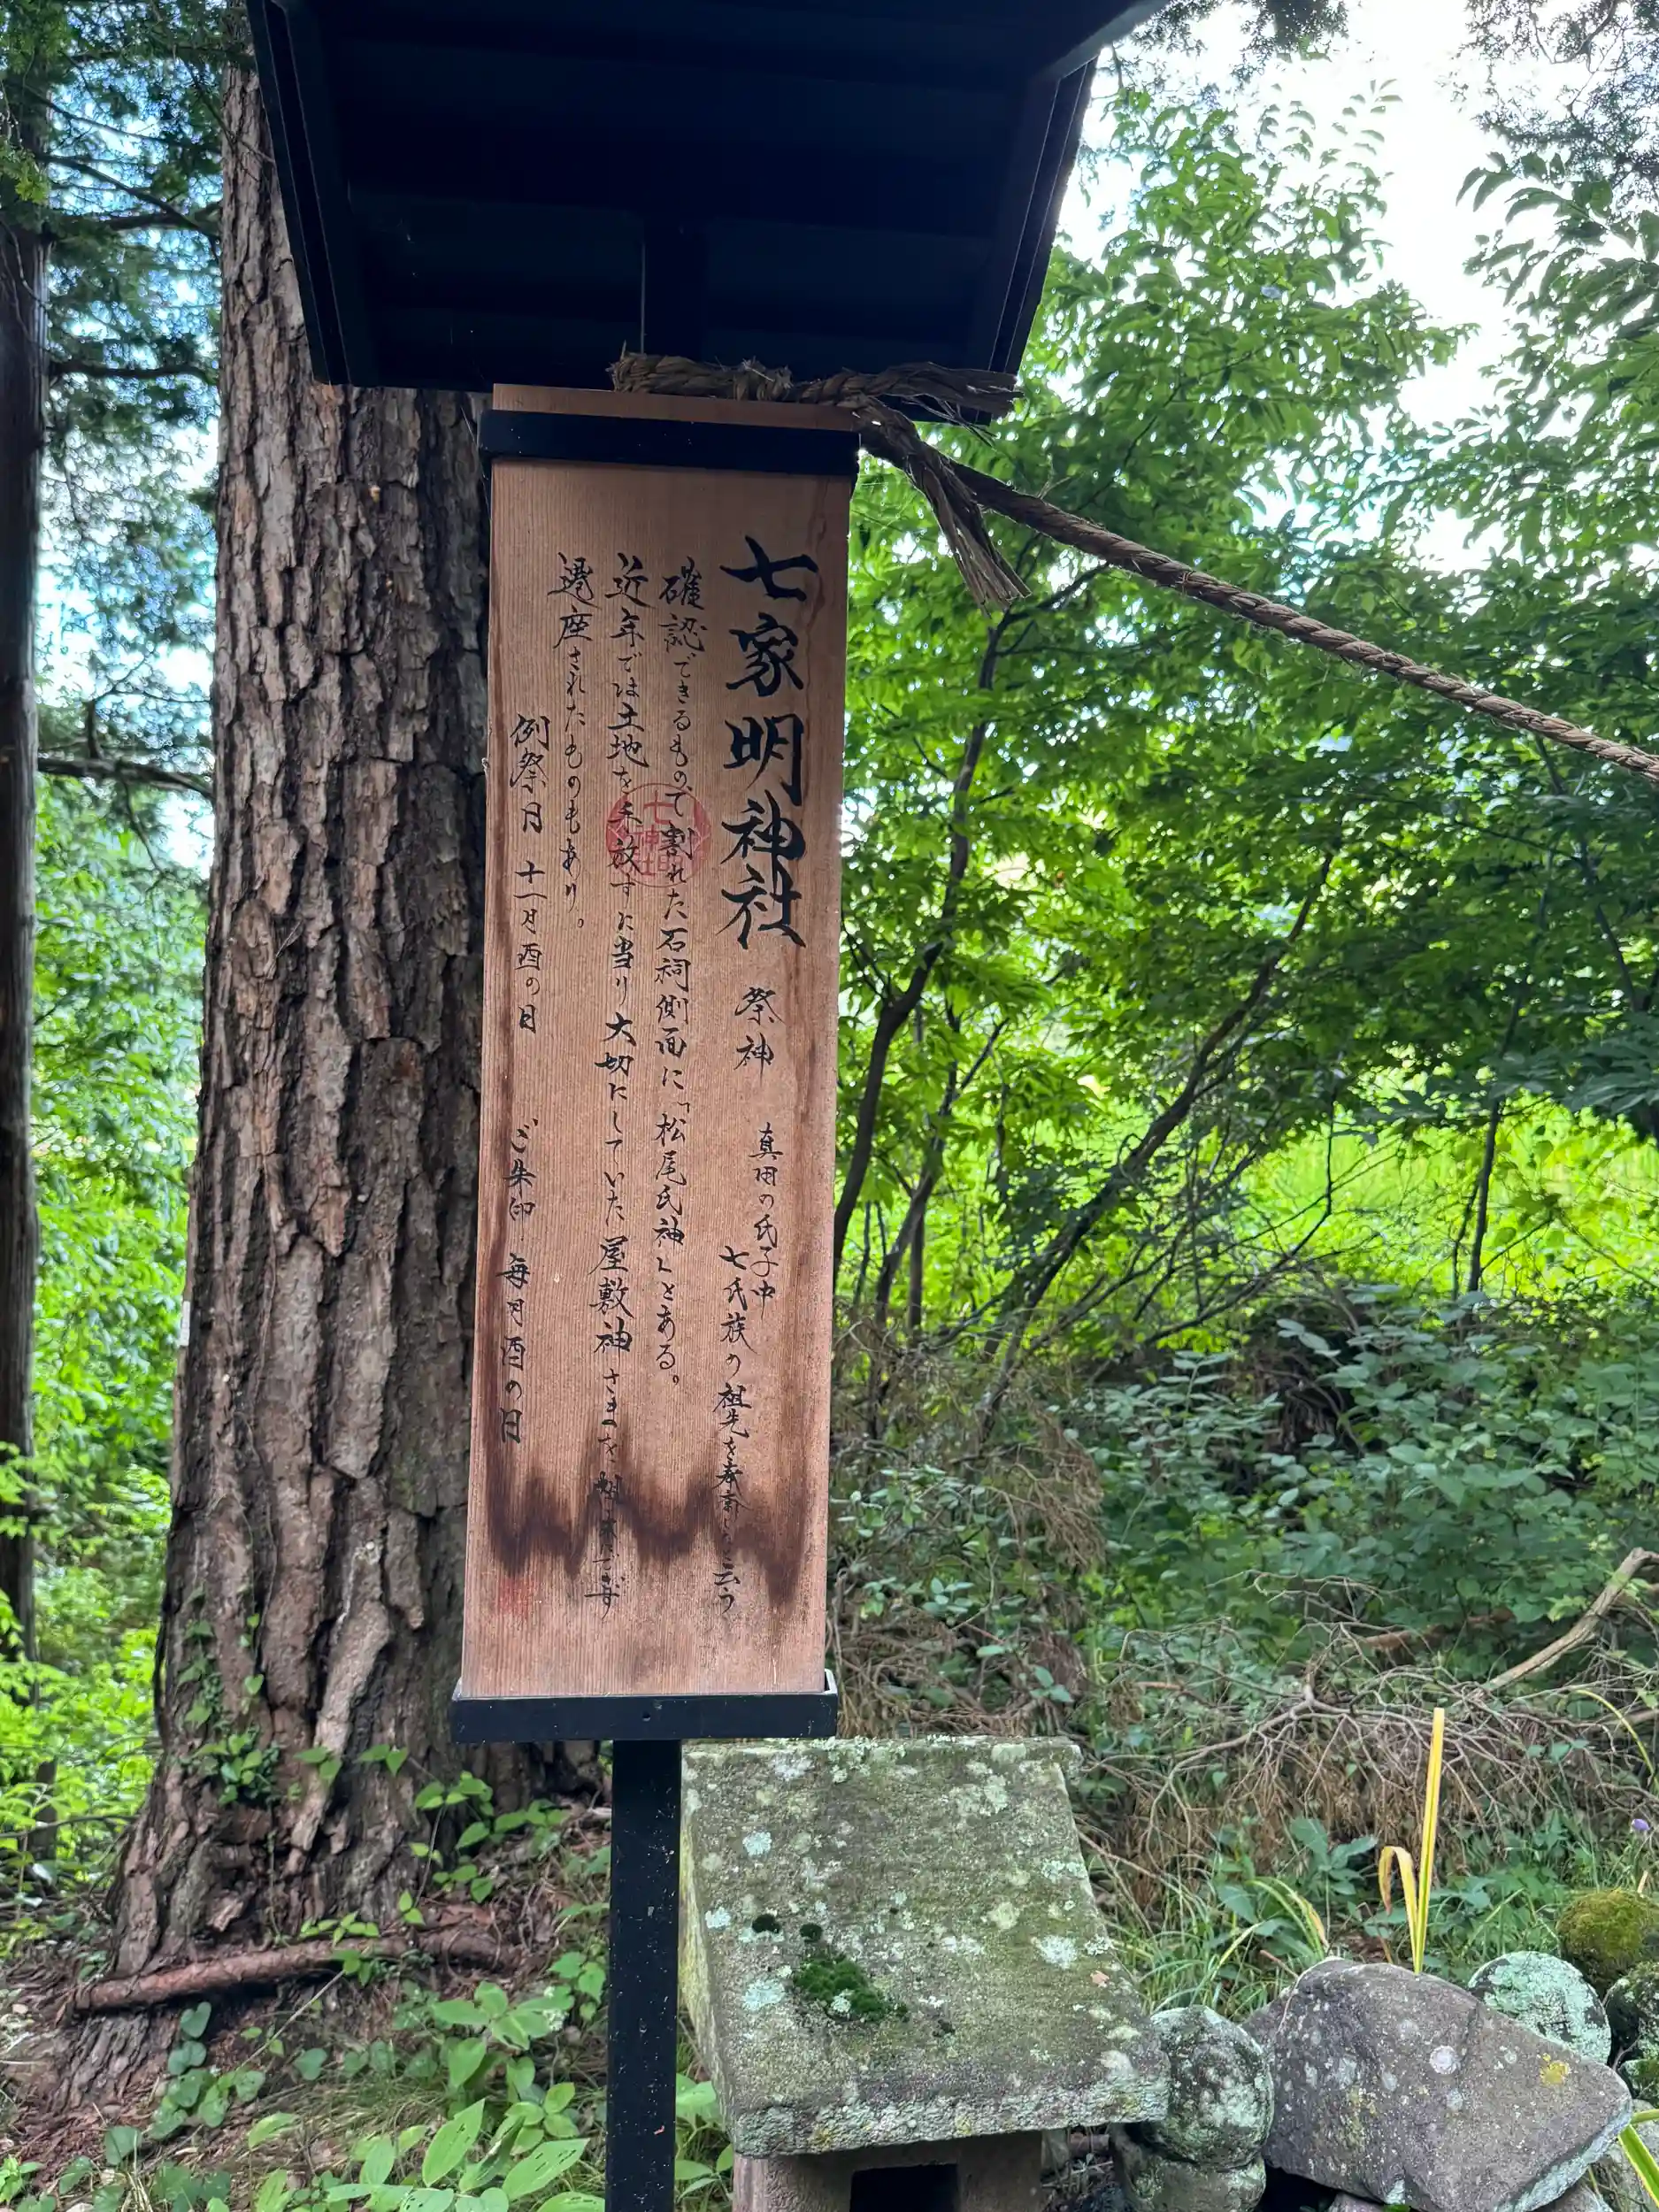 七家明神社 祭神 真田の氏子中
七氏族の祖先を奉斎すと云う
確認できるもので割れた石祠側面に「松尾氏神」とある。
近年では土地を手放すに当り大切にしていた屋敷神さまを
遷座されたものもあり。
例祭月 十一月酉の日 ご朱印 毎月酉の日